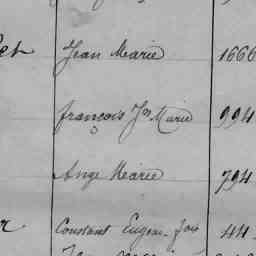 Jean Marie 1666
françois Jh Marie 994
Ange Marie 794
Constant Eugene fois 44